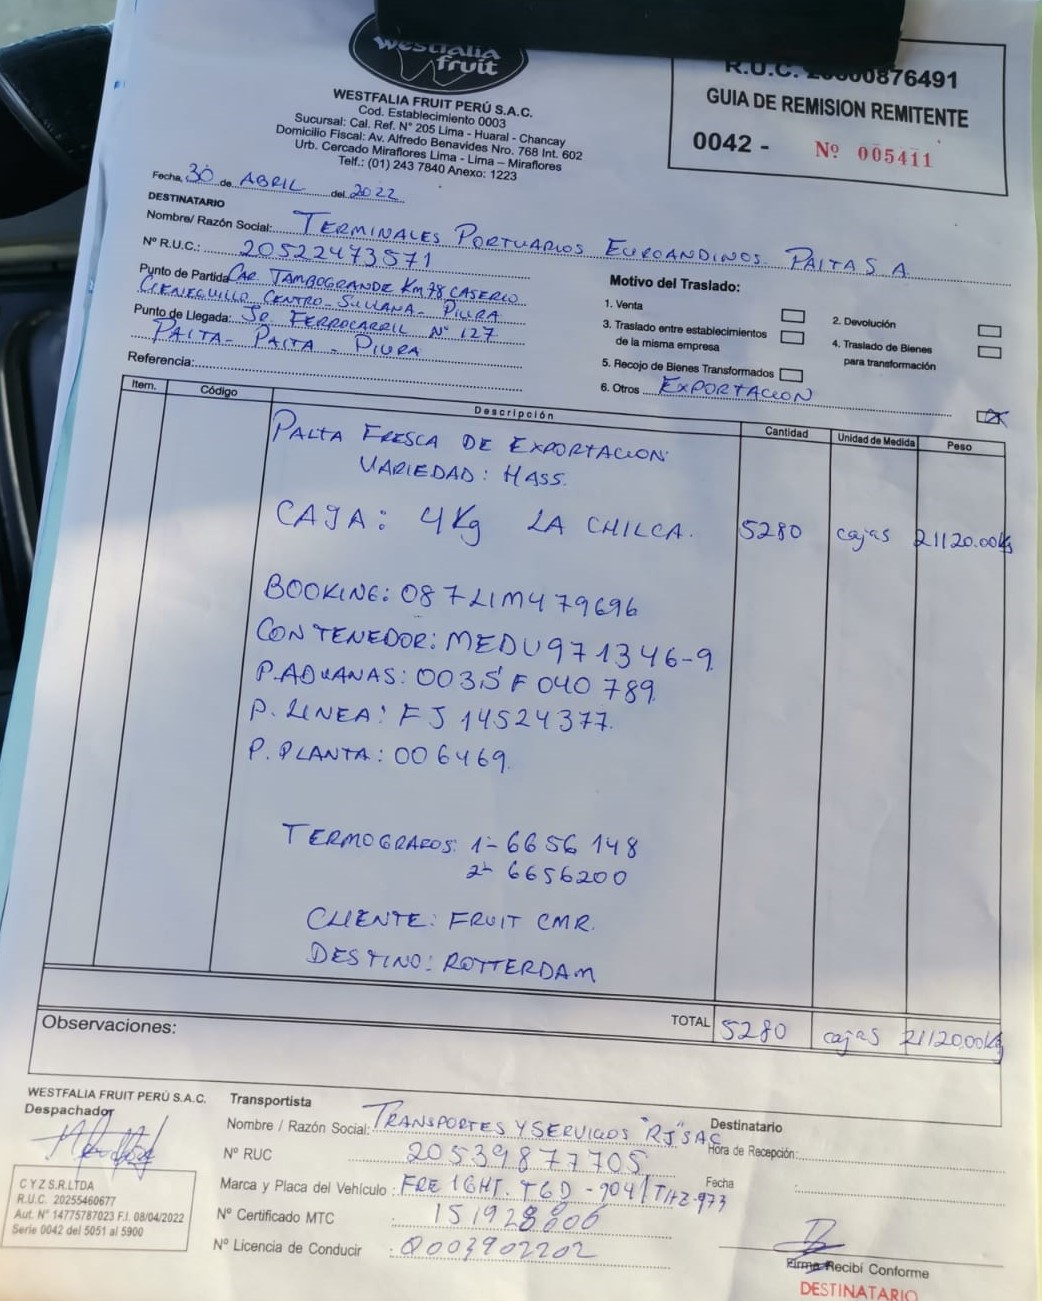 westfalia
fruit
WESTFALIA FRUIT PERÚ S.A.C.
Cod. Establecimiento 0003
Sucursal: Cal. Ref. N° 205 Lima - Huaral - Chancay
Domicilio Fiscal: Av. Alfredo Benavides Nro. 768 Int. 602
Urb. Cercado Miraflores Lima - Lima – Miraflores
Telf.: (01) 243 7840 Anexo: 1223
R.U.C.
GUIA DE REMISION REMITENTE
0042 - Nº 005411
Fecha, 30 de ABRIL del 2022
DESTINATARIO
Nombre/ Razón Social: TERMINALES PORTUARIOS EUROANDINOS PAITA S.A.
N° R.U.C.: 20522473571
Punto de Partida: CAR. TAMBOGRANDE KM 78 CASERIO
CIENEGUILLO CENTRO - SULLANA - PIURA
Punto de Llegada: JR. FERROCARRIL N° 127
PAITA - PAITA - PIURA
Referencia:
Motivo del Traslado:
1. Venta
2. Devolución
3. Traslado entre establecimientos
de la misma empresa
4. Traslado de Bienes
para transformación
5. Recojo de Bienes Transformados
6. Otros EXPORTACION X
Item. Código Descripción Cantidad Unidad de Medida Peso
PALTA FRESCA DE EXPORTACION
VARIEDAD: HASS.
CAJA: 4Kg LA CHILCA. 5280 cajas 21120.00Kg
BOOKING: 087LIM479696
CONTENEDOR: MEDU971346-9
P. ADUANAS: 0035F040789
P. LINEA: FJ 14524377.
P. PLANTA: 006469.
TERMOGRAFOS: 1- 6656148
2- 6656200
CLIENTE: FRUIT CMR.
DESTINO: ROTTERDAM
TOTAL 5280 cajas 21120.00Kg
Observaciones:
WESTFALIA FRUIT PERÚ S.A.C.
Despachador
C Y Z S.R.LTDA
R.U.C. 20255460677
Aut. N° 14775787023 F.I. 08/04/2022
Serie 0042 del 5051 al 5900
Transportista
Nombre / Razón Social: TRANSPORTES Y SERVICIOS "RJ" SAC
N° RUC 20539877705
Marca y Placa del Vehículo : FREIGHT. T6D-904/
N° Certificado MTC :
N° Licencia de Conducir : Q003902202
Destinatario
Hora de Recepción:
Fecha :
Firma Recibí Conforme
DESTINATARIO